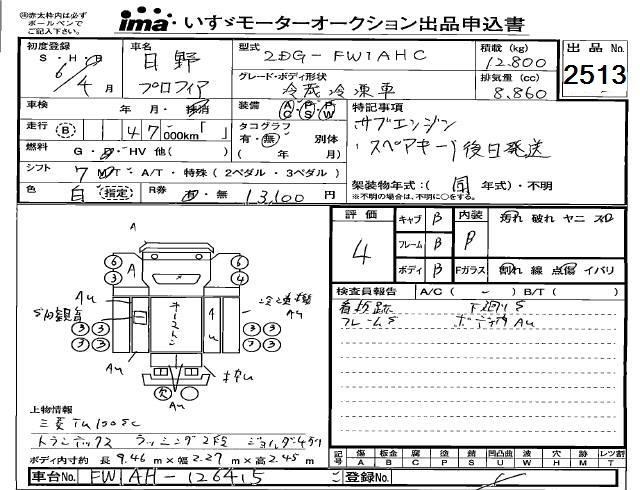 ㊟赤太枠内は必ず
ボールペンで
ご記入下さい。
ima いすゞモーターオークション出品申込書
初度登録
S・H・R
6/4月
車名
日野
プロフィア
型式 2DG-FW1AHC
グレード・ボディ形状
冷蔵冷凍車
積載(kg)
12.800
排気量(cc)
8.860
出品No.
2513
車検 年 月・抹消
装備 A/C P/S P/W
特記事項
サブエンジン
スペアキー 後日発送
走行 B 47,000km「 」
タコグラフ
有・無 別体
( 年 月)
燃料 G・D・HV 他( )
シフト 7 MT・A/T・特殊(2ペダル・3ペダル)
色 白 指定 R券 有・無 13,100円
架装物年式:( 同 年式)・不明
(※不明の場合は、不明に○をする)
評価 4
キャブ B
フレーム B
ボディ B
内装 B
Fガラス
汚れ 破れ ヤニ スレ
割れ 線 点傷 イバリ
検査員報告 A/C( - ) B/T( )
看板跡 下廻りS
フレームS ボディ内AU
A
6 6 3 4
A
AU
キーストン
3 3 3 3
7 7 7 7
AU
欠
AU
上物情報
三菱 TU100SC
トランテックス ラッシング2段 ジョルダー4列
ボディ内寸約 長9.46m×幅2.27m×高2.45m
記号 傷A 板金B 腐C 塗P 油S 錆 凹凸曲U 波W 穴H 跡M レツ割T
車台No. FW1AH-126415
登録No.